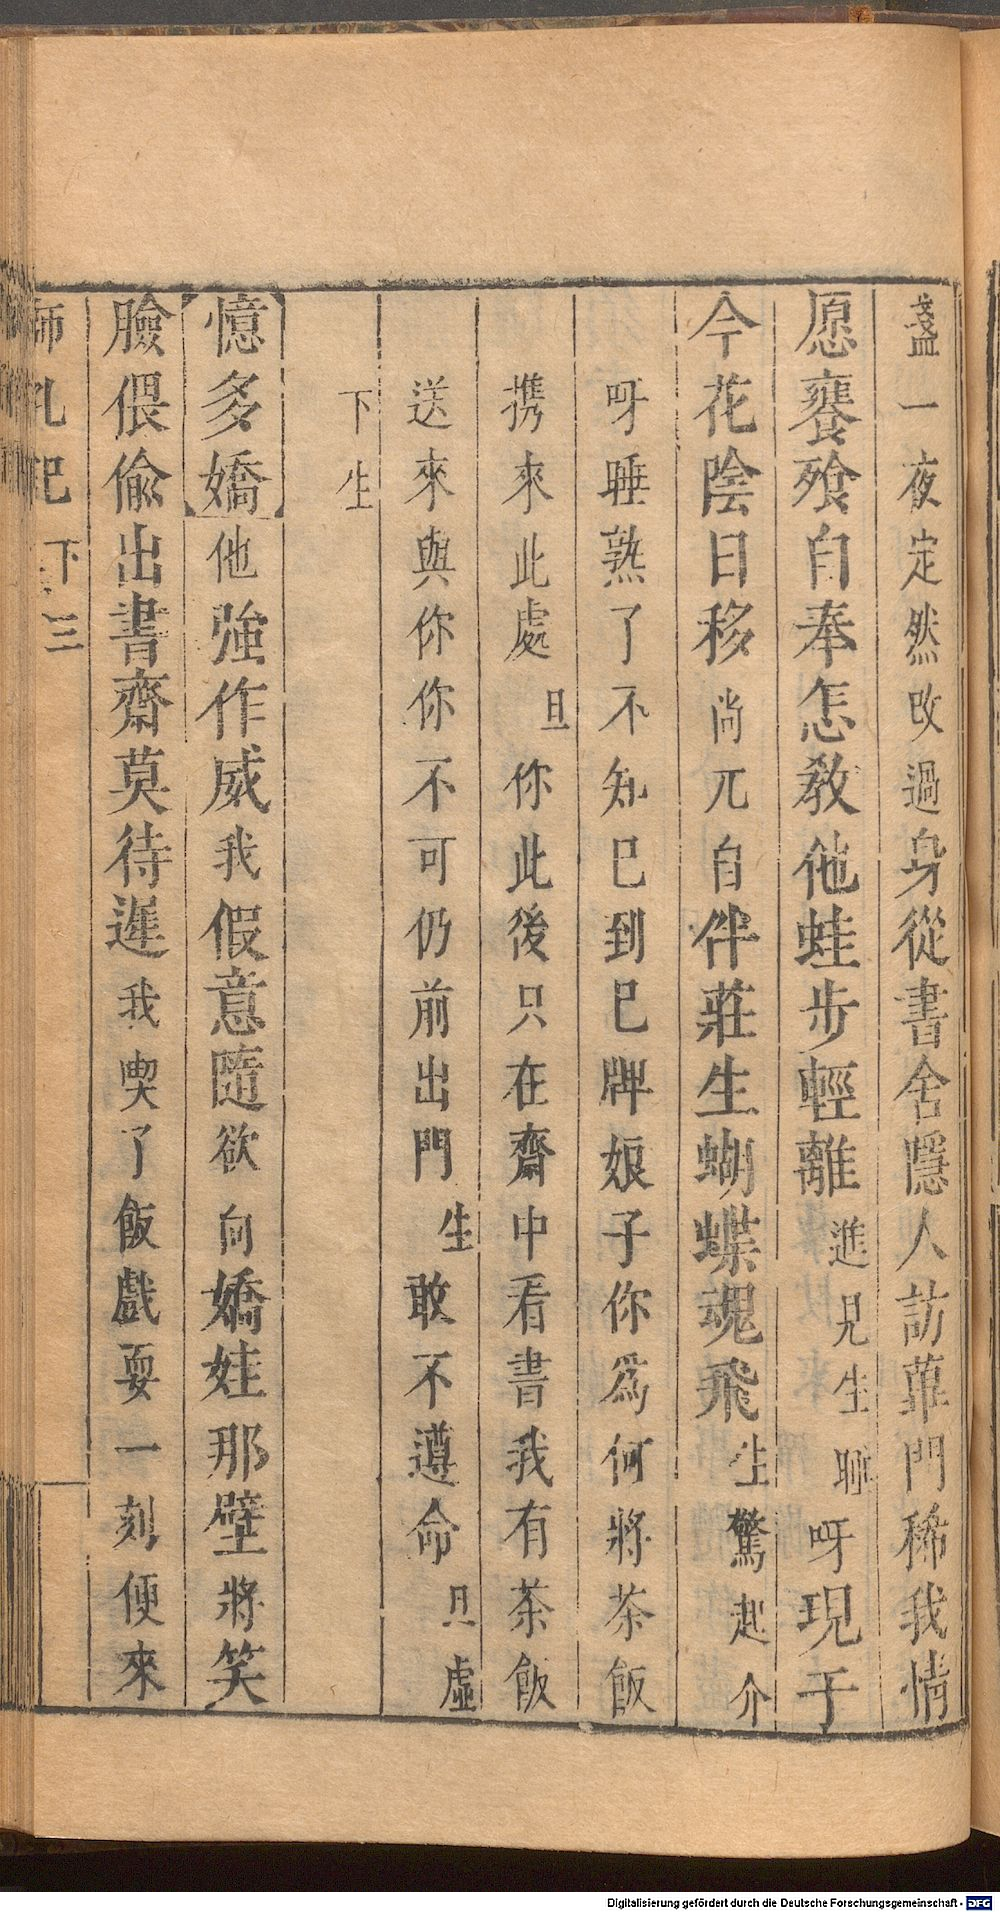 盞一夜定然改過身從書舍隱人訪蓽門稀我情
愿饔飱自奉怎教他蛙步輕離進見生睡呀現于
今花陰日移尚兀自伴莊生蝴蝶魂飛生驚起介
呀睡熟了不知已到巳牌娘子你爲何將茶飯
携來此處旦你此後只在齋中看書我有茶飯
送來與你你不可仍前出門生敢不遵命旦虛
下生
憶多嬌他強作威我假意隨欲向嬌娃那壁將笑
臉偎偸出書齋莫待遲我喫了飯戲耍一刻便來
獅吼記 下 三
Digitalisierung gefördert durch die Deutsche Forschungsgemeinschaft - DFG